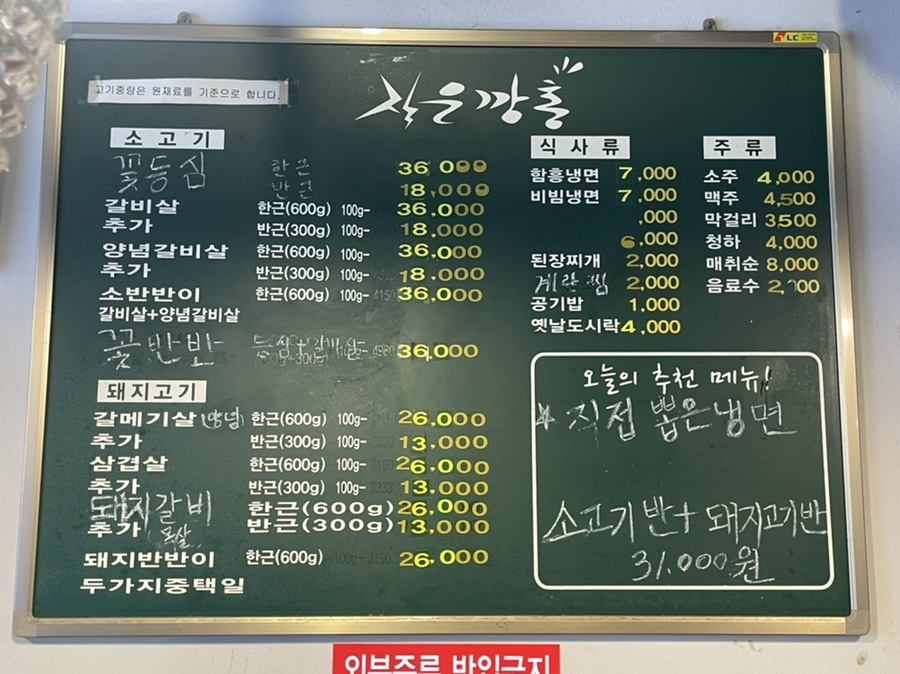 고기중량은 원재료를 기준으로 합니다.
작은깡통
소고기
꽃등심 한근 36,000
반근 18,000
갈비살 한근(600g) 100g- 36,000
추가 반근(300g) 100g- 18,000
양념갈비살 한근(600g) 100g- 36,000
추가 반근(300g) 100g- 18,000
소반반이 한근(600g) 100g- 36,000
갈비살+양념갈비살
꽃반반 등심+갈비살 36,000
돼지고기
갈메기살(양념) 한근(600g) 100g- 26,000
추가 반근(300g) 100g- 13,000
삼겹살 한근(600g) 100g- 26,000
추가 반근(300g) 100g- 13,000
돼지갈비 한근(600g) 26,000
추가 목살 반근(300g) 13,000
돼지반반이 한근(600g) 100g- 3150 26,000
두가지중택일
식사류
함흥냉면 7,000
비빔냉면 7,000
,000
6,000
된장찌개 2,000
계란찜 2,000
공기밥 1,000
옛날도시락 4,000
주류
소주 4,000
맥주 4,500
막걸리 3,500
청하 4,000
매취순 8,000
음료수 2,000
오늘의 추천 메뉴!
* 직접 뽑은냉면
소고기반+돼지고기반
31.000원
외부주류 반입금지
LC